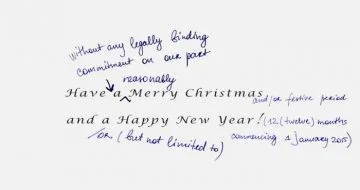 without any legally binding
commitment on our part
reasonably
Have a Merry Christmas
and/or festive period
and a Happy New Year!
(12 (twelve) months
commencing 1 January 2015)
/or (but not limited to)